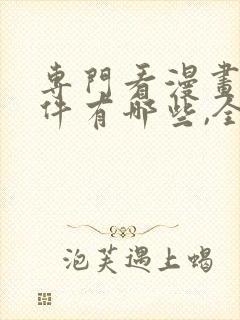 專門看漫畫
件有哪些,全
泡芙遇上蝎